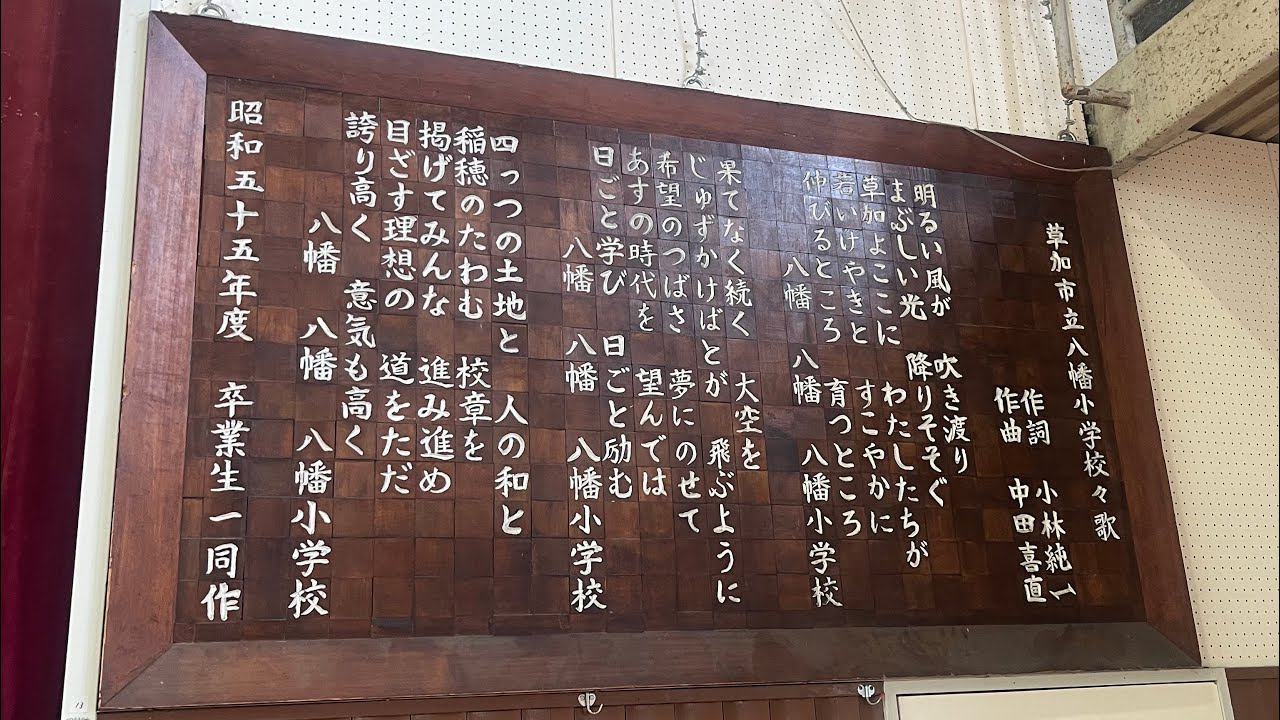 草加市立八幡小学校々歌
作詞 小林純一
作曲 中田喜直
明るい風が 吹き渡り
まぶしい光 降りそそぐ
草加よここに わたしたちが
若いけやきと すこやかに
伸びるところ 育つところ
八幡 八幡 八幡小学校
果てなく続く 大空を
じゅずかけばとが 飛ぶように
希望のつばさ 夢にのせて
あすの時代を 望んでは
日ごと学び 日ごと励む
八幡 八幡 八幡小学校
四っつの土地と 人の和と
稲穂のたわむ 校章を
掲げてみんな 進み進め
目ざす理想の 道をただ
誇り高く 意気も高く
八幡 八幡 八幡小学校
昭和五十五年度 卒業生一同作